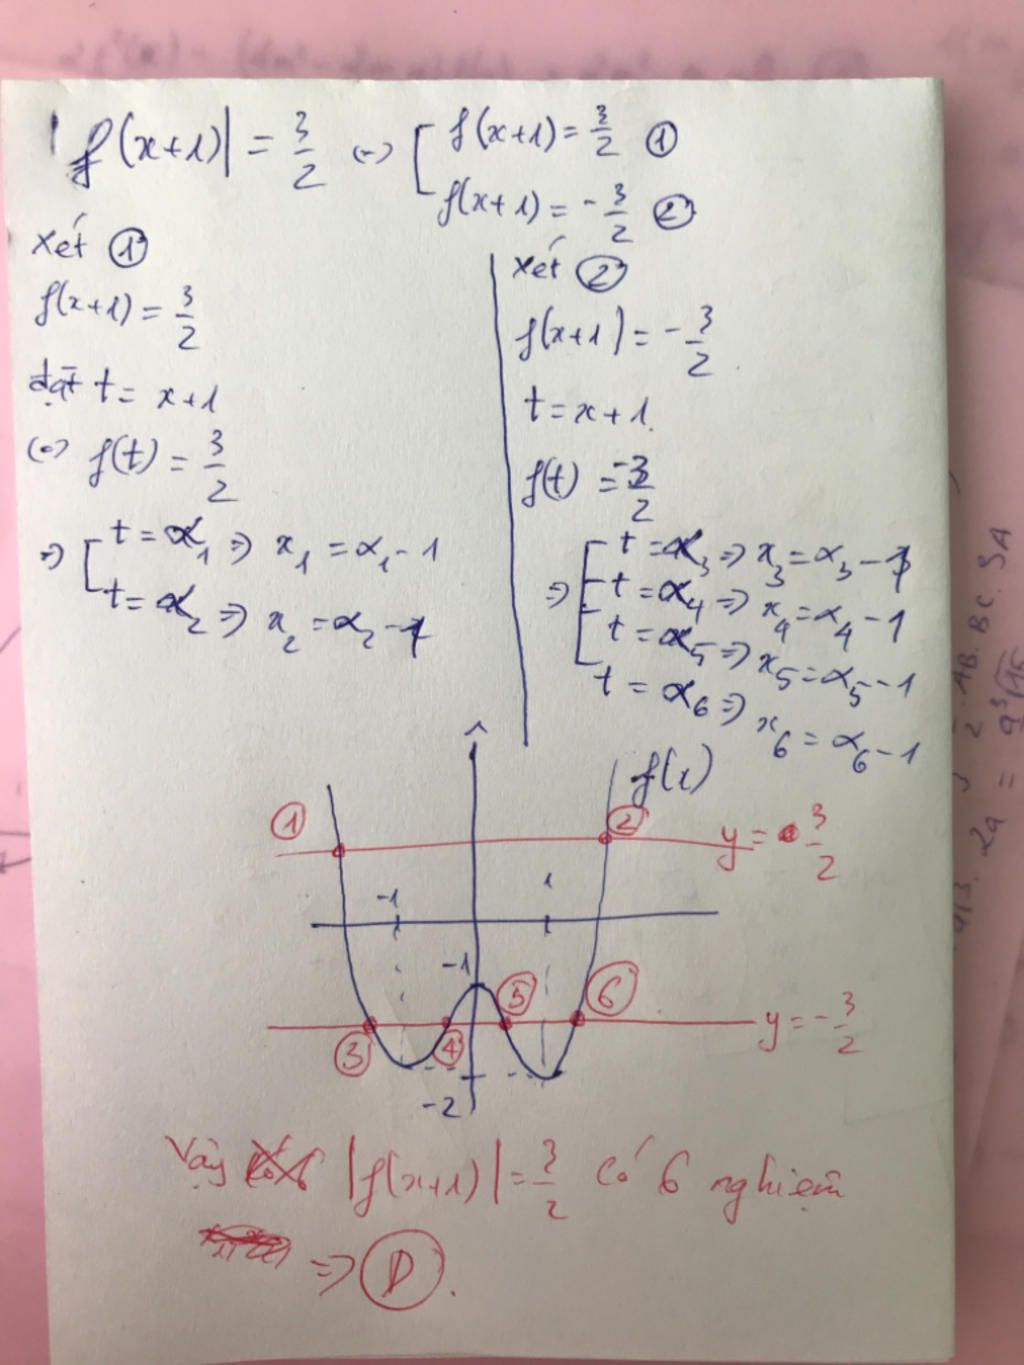 |f(x+1)| = 3/2 (-) [ f(x+1) = 3/2 ①
f(x+1) = -3/2 ②
Xét ①
f(x+1) = 3/2
đặt t = x+1
(=) f(t) = 3/2
=) [ t = α₁ =) x₁ = α₁ - 1
t = α₂ =) x₂ = α₂ - 1
Xét ②
f(x+1) = -3/2
t = x+1.
f(t) = -3/2
=) [ t = α₃ =) x₃ = α₃ - 1
t = α₄ =) x₄ = α₄ - 1
t = α₅ =) x₅ = α₅ - 1
t = α₆ =) x₆ = α₆ - 1
f(x)
① ② y = 3/2
-1 1
-1
③ ④ ⑤ ⑥ y = -3/2
-2
Vậy |f(x+1)| = 3/2 có 6 nghiệm
=) Ⓓ.
2 AB. BC. SA